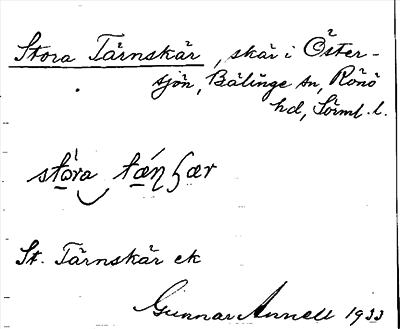 Stora Tärnskär, skär i Öster-
sjön, Bälinge sn, Rönö
hd, Sörml. l.
stòra tǽɳʂær
St. Tärnskär ek
Gunnar Annell 1933